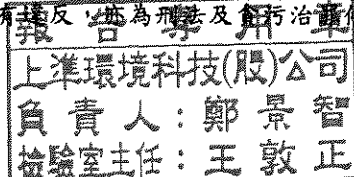 有違反，亦為刑法及貪污治罪條
報告專用章
上準環境科技(股)公司
負責人：鄭景智
檢驗室主任：王敦正